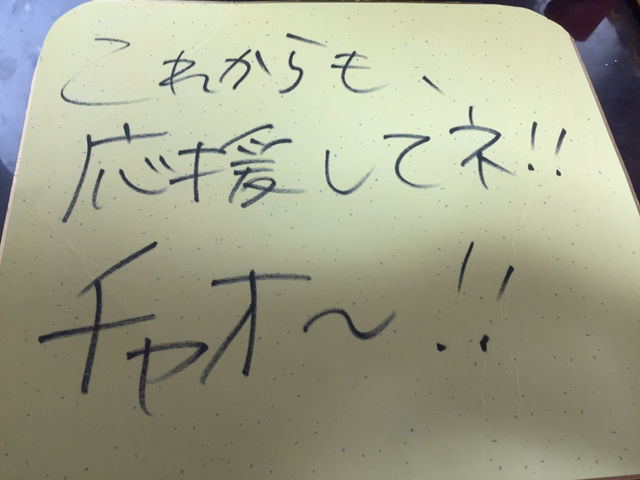 これからも、
応援してネ!!
チャオ〜!!